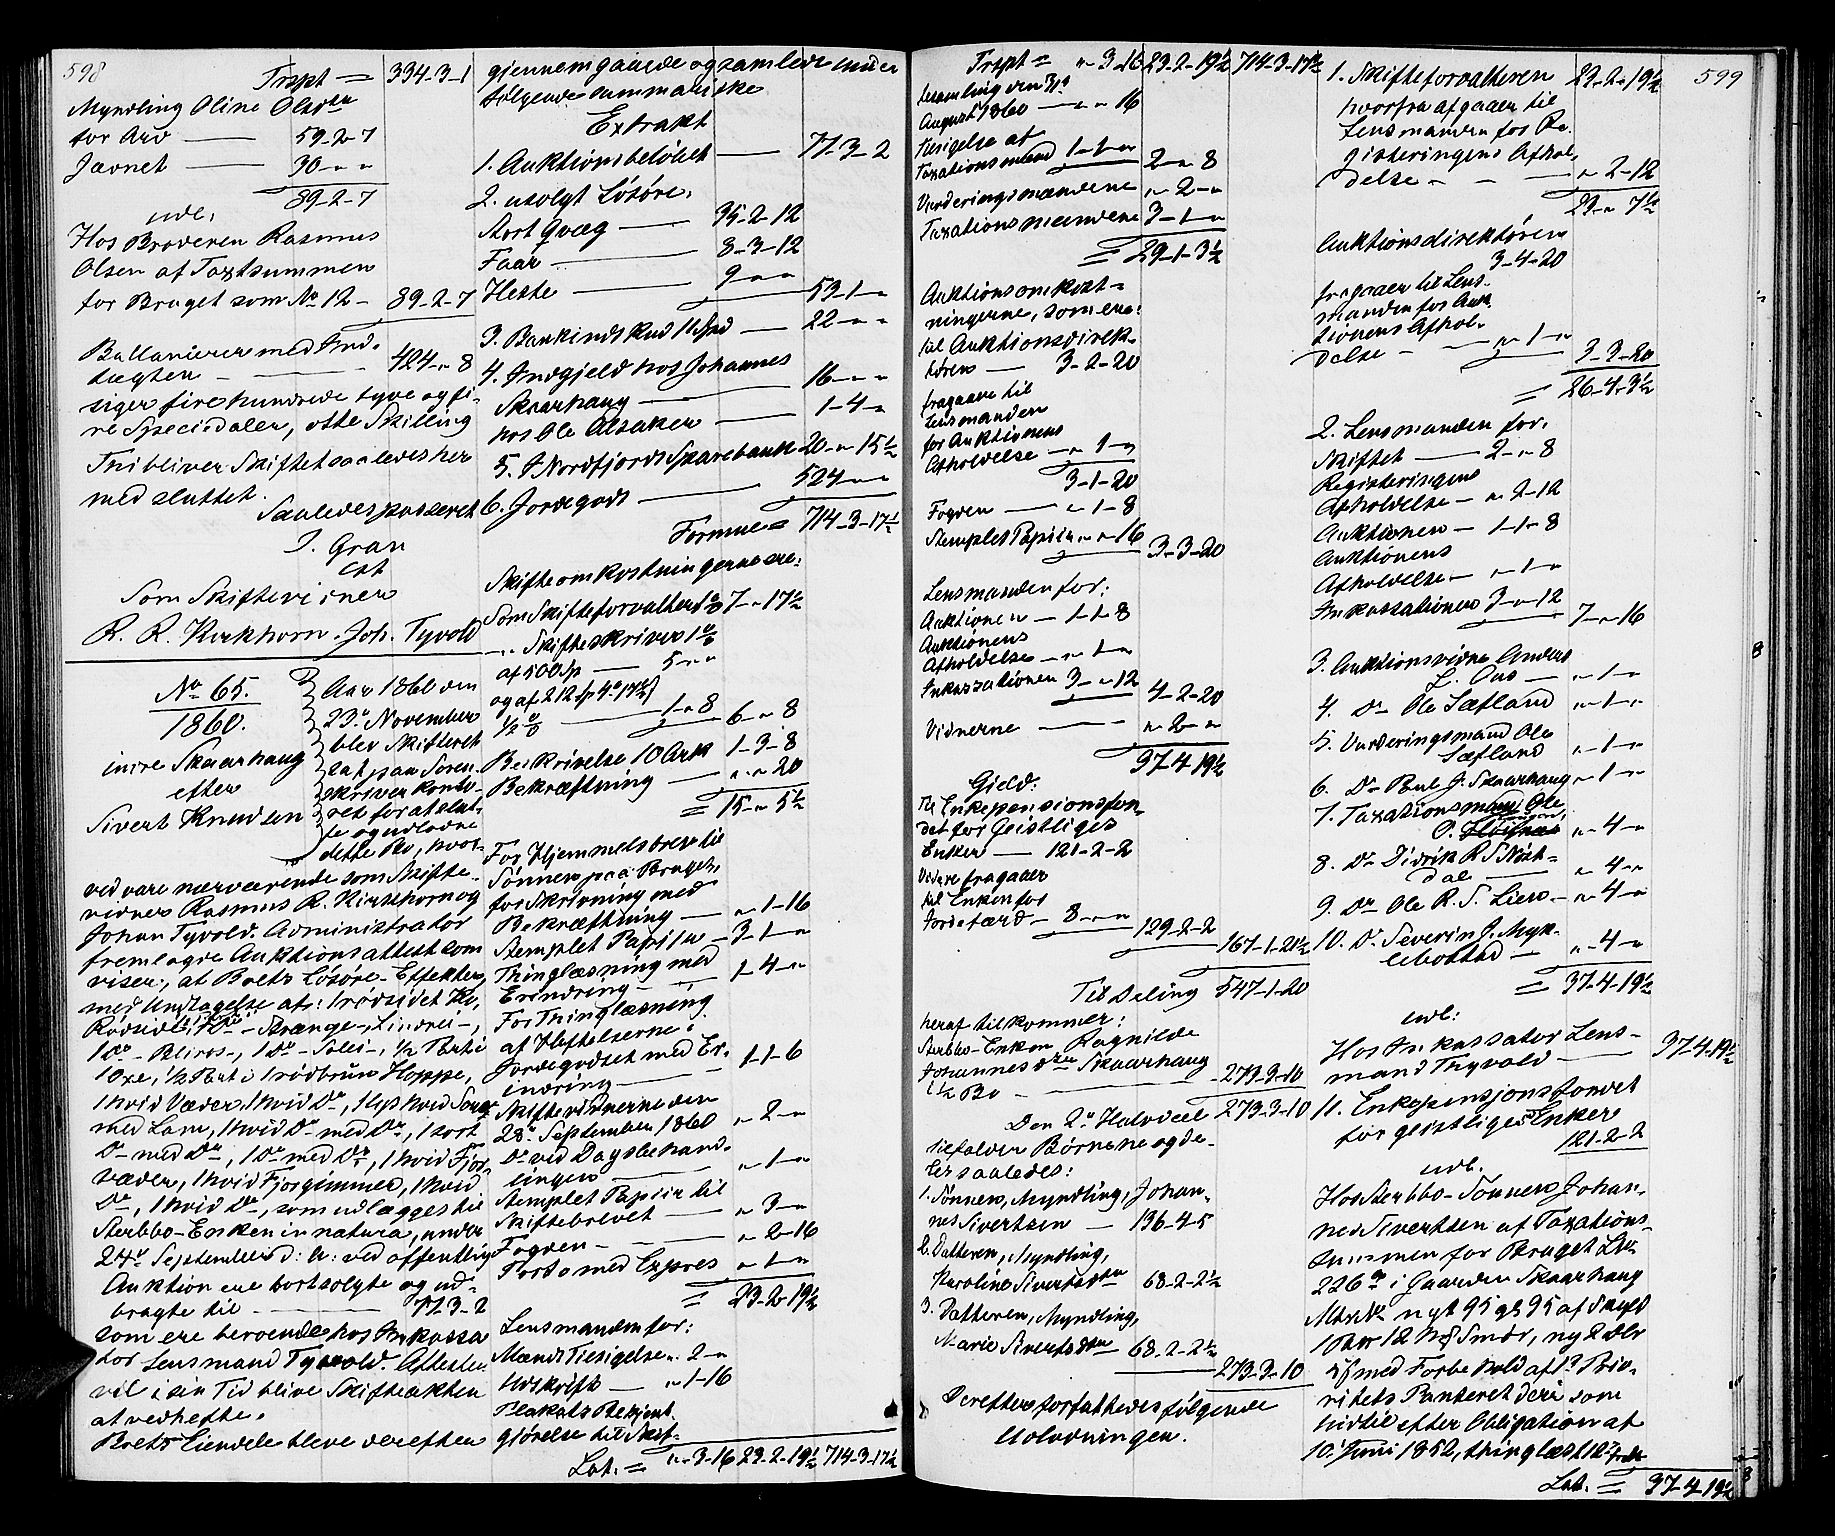 598
Trspt = 334-3-1
Myndling Oline Olsdtr
for Arv — 59-2-7
Jævnet — 30-"-"
89-2-7
udl.
Hos Broderen Rasmus
Olsen af Taxtsummen
for Bruget som No 12 - 89-2-7
Ballancerer med Ind-
tægten — 424-"-8
siger fire hundrede tyve og fi-
re Speciedaler, otte Skilling
Thi bliver Skiftet saaledes her
med sluttet.
Saaledes passeret
J. Gran
cst
Som Skiftevidner
R. R. Hirkhorn. Joh. Tyvold
No 65.
1860.
indre Skaarhaug
efter
Sivert Knudsen
Aar 1860 den
23de November
blev Skifteret
sat paa Soren-
skriver konto-
ret for at slut-
te og udlodde
dette Bo, hvor-
ved vare nærværende som Skifte-
vidner Rasmus R. Hirschorn og
Johan Tyvold. Administrator
fremlagde Auktionsattest som
viser, at Boets Løsøre-Effekter,
med Undtagelse af: 1 rødsidet Ko,
Rødsidet, 1 Do - Strænge-, Lindrei-,
1 Do - Bliros-, 1 Do - Solei-, 1/2 Part i
1 Oxe, 1/2 Part i 1 rødbrun Hoppe,
1 hvid Væder, 1 hvid Do, 1 lys hvid Soue
med Lam, 1 hvid Do med Do, 1 sort
Do med Do, 1 Do med Do, 1 hvid Fjor-
væder, 1 hvid Fjorgimmer, 1 hvid
Do, 1 hvid Do, som udlægges til
Sterbbo-Enken in natura, under
24de September d: A: ved offentlig
Auktion ere bortsolgte og ud-
bragte til — 77-3-2
som ere beroende hos Inkassa-
tor Lensmand Tyvold. Attesten
vil i sin Tid blive Skifteakten
at vedhefte.
Boets Eiendele bleve derefter
gjennemgaaede og samlede under
følgende summariske
Extrakt
1. Auktionsbeløbet — 77-3-2
2. usolgt Løsøre.
Stort Qvæg — 35-2-12
Faar — 8-3-12
Heste — 9-"-"
53-1-"
3. Bankindskud — 22-"-"
4. Indgjeld hos Johannes
Skaarhaug — 16-"-"
hos Ole Alsaker — 1-4-"
5. I Nordfjords Sparebank 20-"-15½
6. Jordegods — 524-"-"
Formue = 714-3-17½
Skifteomkostningerne ere:
Som Skifteforvalter 1% 7-"-17½
-"- Skifteskriver 1%
af 500 Sp — 5-"-"
og af 212 Sp 4 17½
1/2 % — 1-"-8 6-"-8
Beskrivelse 10 Ark 1-3-8
Bekræftning — "-"-20
= 15-"-5½
For Hjemmelsbrev til
Sønnen paa Bruget,
for Skrivning med
Bekræftning — "-1-16
Stemplet Papiir — 3-1-"
Thinglæsning med
Erindring — 1-4-"
For Thinglæsning
af Heftelserne i
Jordegodset med Er-
indring — 1-1-6
Skiftevidnerne den
28de September 1860 "-2-"
Do ved Dagsbehand-
lingen — "-1-"
Stemplet Papiir til
Skiftebrevet — "-3-"
Fogden — "-2-16
Porto med Expres "-1-"
= 23-2-19½
Lensmanden for:
Mands Tilsigelse "-2-"
Udskrift — "-1-16
Plakats Bekjent-
gjørelse til Skif-
Lat. = "-3-16 23-2-19½ 714-3-17½
Trspt = "-3-16 23-2-19½ 714-3-17½
tesamling den 31te
August 1860 — "-"-16
Tilsigelse af
Taxationsmænd 1-1-"
2-"-8
Vurderingsmændene "-2-"
Taxationsmændene 3-1-"
= 29-1-3½
Auktionsomkost-
ningerne, som ere:
til Auktionsdirek-
tøren — 3-2-20
fragaaer til
Lensmanden
for Auktionens
Afholdelse — "-1-"
3-1-20
Fogden — "-1-8
Stemplet Papiir "-"-16
3-3-20
Lensmanden for:
Auktionen — 1-1-8
Auktionens
Afholdelse — "-1-"
Inkassationen 3-"-12
4-2-20
Vidnerne — "-2-"
37-4-19½
Gjeld:
Til Enkepensionsfon-
det for Geistliges
Enker — 121-2-2
Videre fragaaer
til Enken for
Jordefærd — 8-"-"
129-2-2
167-1-21½
Til Deling 547-1-20
heraf tilkommer:
Sterbbo-Enken Ragnilde
Johannesdtr Skaarhaug
1/2 Bo — 273-3-10
Den 2de Halvdeel 273-3-10
tilfalder Børnene og de-
les saaledes:
1. Sønnen, Myndling, Johan-
nes Sivertsen — 136-4-5
2. Datteren, Myndling,
Karoline Sivertsdtr 68-2-2½
3. Datteren, Myndling,
Marie Sivertsdtr 68-2-2½
273-3-10
Derefter forfattedes følgende
Udlodningen.
599
1. Skifteforvalteren 23-2-19½
hvorfra afgaaer til
Lensmanden for Re-
gisteringens Afhol-
delse — "-2-12
23-"-7½
Auktionsdirektøren
3-4-20
fragaaer til Lens-
manden for Auk-
tionens Afhol-
delse — "-1-"
3-3-20
= 26-4-3½
2. Lensmanden for:
Skiftet — 2-"-8
Registeringens
Afholdelse — "-2-12
Auktionen — 1-1-8
Auktionens
Afholdelse — "-1-"
Inkassationen 3-"-12
7-"-16
3. Auktionsvidne Anders
L. Aas — "-1-"
4. Do Ole Sætland "-1-"
5. Vurderingsmand Ole
Sætland "-1-"
6. Do Poul J. Skaarhaug "-1-"
7. Taxationsmand Ole
"-4-"
8. Do Didrik R. S. Nord-
dal — "-4-"
9. Do Ole R. S. Lien — "-4-"
10. Do Severin J. Myk-
lebostad — "-4-"
= 37-4-19½
udl:
Hos Inkassator Lens-
mand Thyvold — 37-4-19½
11. Enkepensjonsfondet
for geistlige Enker
121-2-2
udl.
Hos Sterbbo-Sønnen Johan-
nes Sivertsen af Taxations-
summen for Bruget Lbr
226a i Gaarden Skaarhaug
Matr No nyt 95 gl 95 af Skyld
1 Ort 18 Mk Smør, ny 2 Dlr
med Forbehold af 1ste Prio-
ritets Panteret deri som
hidtil efter Obligation af
10de Juni 1852, thinglæst 12te
Lat. = 37-4-19½